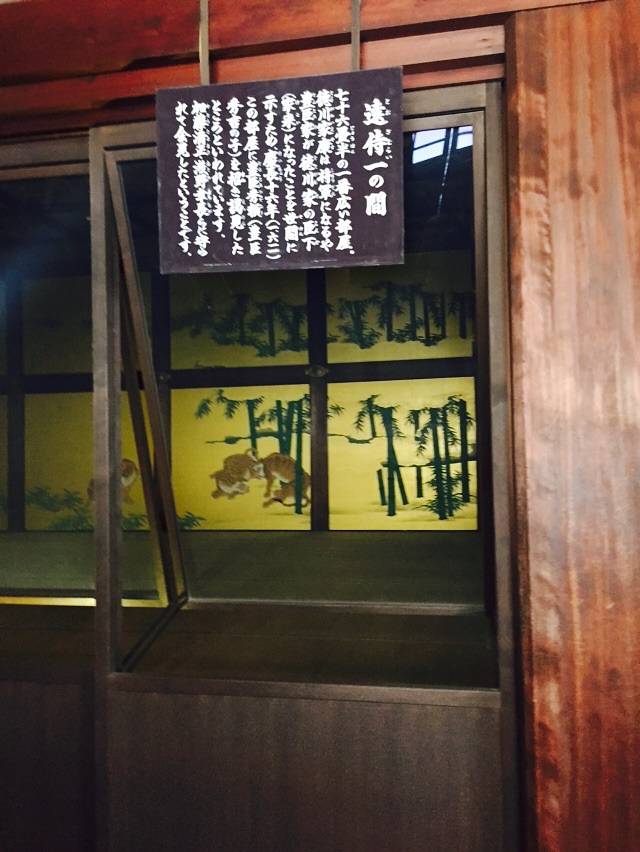 遠侍一の間
七十六畳半の一番広い部屋。
徳川家康は将軍になるや
豊臣家が徳川家の臣下
(家来)になったことを世間に
示すため、慶長十六年(一六一一)
この部屋に豊臣秀頼(豊臣
秀吉の子)を招き謁見した
ところといわれています。
加藤清正、浅野幸長に守ら
れて会見したということです。